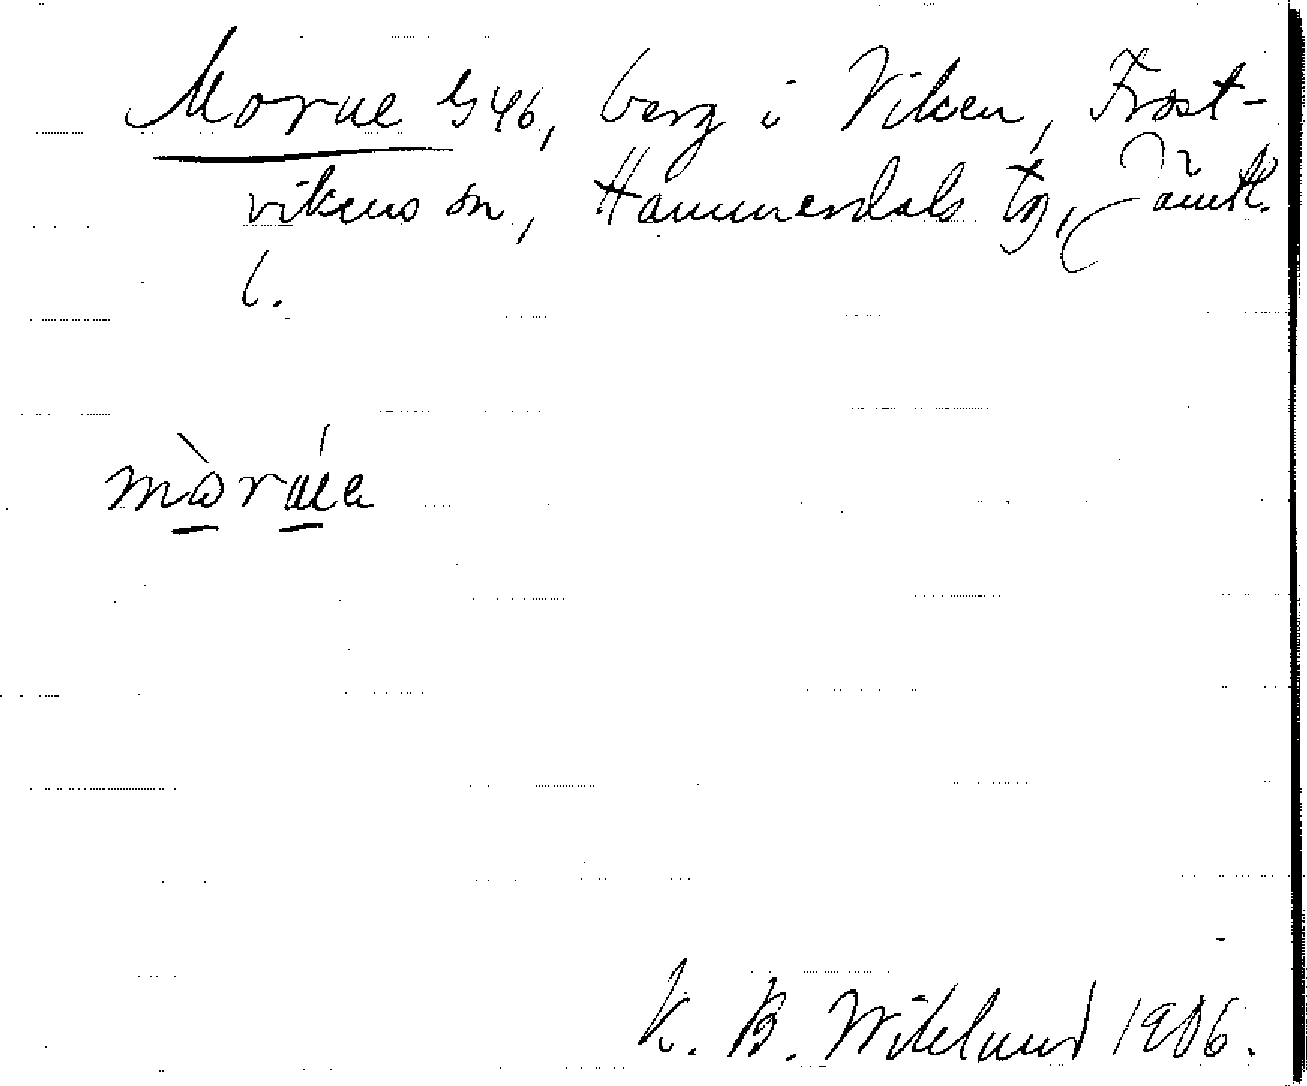 Morue G46, berg i Viken, Frost-
vikens sn, Hammerdals tg, Jämtl.
l.
mòrúe
K. B. Wiklund 1906.